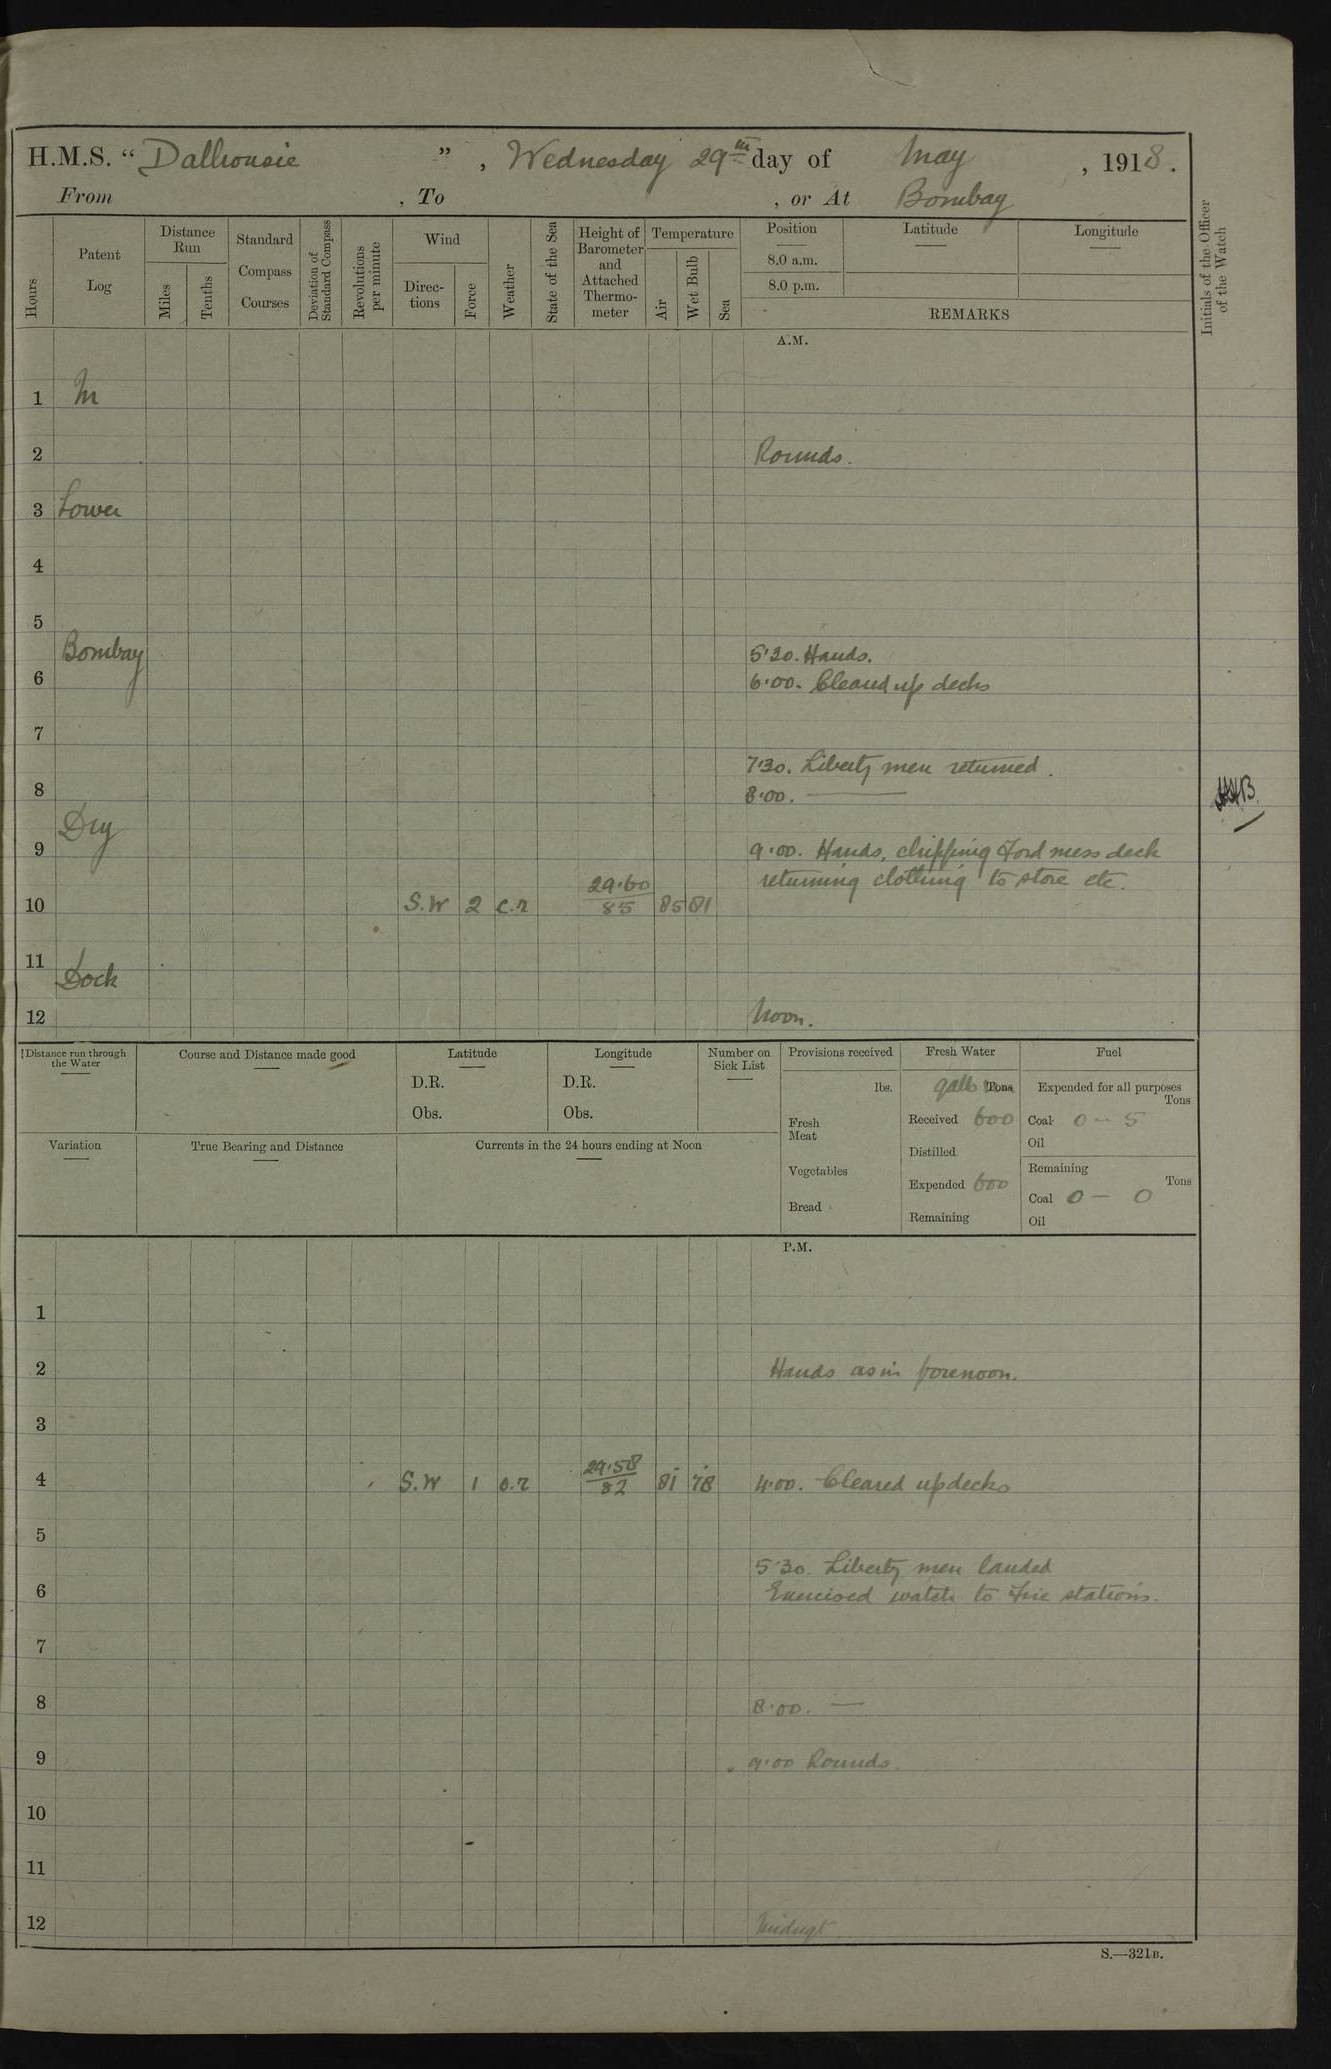 H.M.S. “Dalhousie ” , Wednesday 29th day of May , 1918.
From , To , or At Bombay
Hours
Patent Log
Distance Run
Miles
Tenths
Standard Compass Courses
Deviation of Standard Compass
Revolutions per minute
Wind
Direc-tions
Force
Weather
State of the Sea
Height of Barometer and Attached Thermo-meter
Temperature
Air
Wet Bulb
Sea
Position
8.0 a.m.
8.0 p.m.
Latitude
Longitude
REMARKS
Initials of the Officer of the Watch
A.M.
1 In
2 Rounds.
3 Lower
4
5
Bombay 5.20. Hands.
6 6.00. Cleared up decks
7
7.30. Liberty men returned.
8 8.00. ——
Dry
9 9.00. Hands, chipping Ford mess deck
29.60 returning clothing to store etc.
10 S.W 2 c.r 85 85 81
11 Dock
12 Noon.
Distance run through the Water
Course and Distance made good
Latitude
D.R.
Obs.
Longitude
D.R.
Obs.
Number on Sick List
Variation
True Bearing and Distance
Currents in the 24 hours ending at Noon
Provisions received
lbs.
Fresh Meat
Vegetables
Bread
Fresh Water
galls Tons
Received 600
Distilled
Expended 600
Remaining
Fuel
Expended for all purposes
Tons
Coal 0 - 5
Oil
Remaining
Tons
Coal 0 - 0
Oil
P.M.
1
2 Hands as in forenoon.
3
29.58
4 S.W 1 o.r 82 81 78 4.00. Cleared up decks
5
5.30. Liberty men landed
6 Exercised watch to Fire stations.
7
8 8.00. —
9 9.00 Rounds.
10
11
12 Midngt
S.—321B.